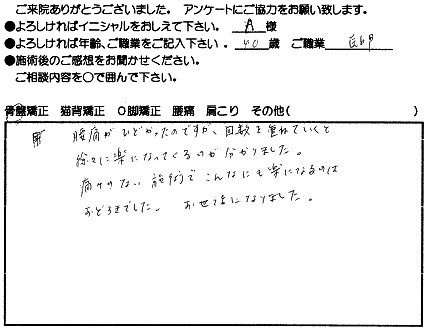 ご来院ありがとうございました。 アンケートにご協力をお願い致します。
●よろしければイニシャルをおしえて下さい。 A 様
●よろしければ年齢、ご職業をご記入下さい。 40 歳 ご職業
●施術後のご感想をお聞かせください。
ご相談内容を〇で囲んで下さい。
骨盤矯正 猫背矯正 O脚矯正 腰痛 肩こり その他( )
腰痛がひどかったのですが、回数を重ねていくと
徐々に楽になってくるのが分かりました。
痛みのない施術でこんなにも楽になるのは
おどろきでした。 おせわになりました。